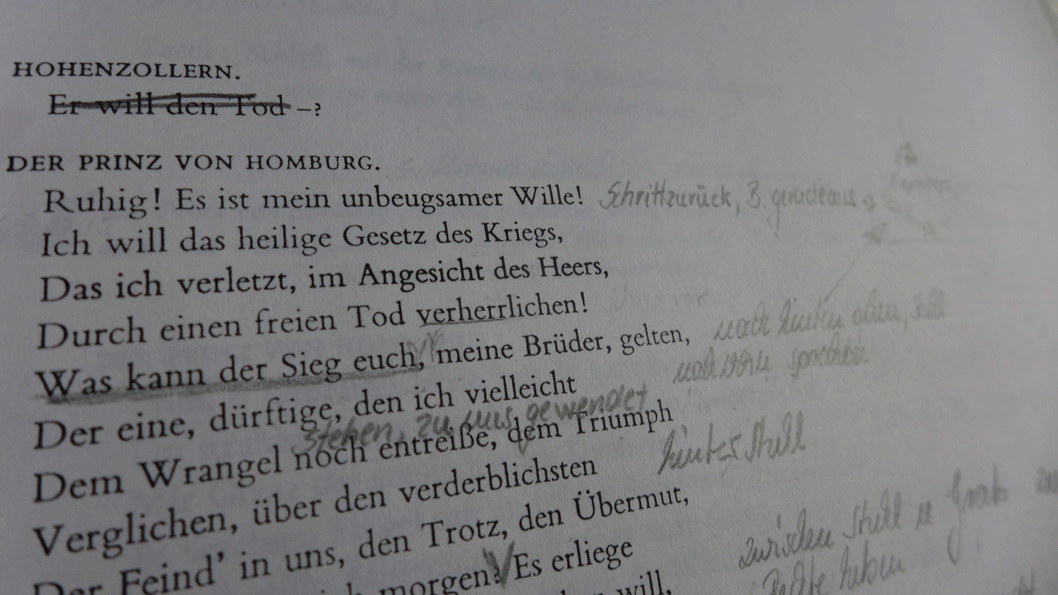 HOHENZOLLERN.
Er will den Tod –?
DER PRINZ VON HOMBURG.
Ruhig! Es ist mein unbeugsamer Wille! Schrittzurück, B. geradeaus
Ich will das heilige Gesetz des Kriegs,
Das ich verletzt, im Angesicht des Heers,
Durch einen freien Tod verherrlichen!
Was kann der Sieg euch, meine Brüder, gelten,
nach vorn sprechen
Der eine, dürftige, den ich vielleicht
stehen, zu uns gewendet
Dem Wrangel noch entreiße, dem Triumph
hinter Stuhl
Verglichen, über den verderblichsten
Der Feind' in uns, den Trotz, den Übermut,
zwischen Stuhl u Grab
morgen? Es erliege
heben
will,